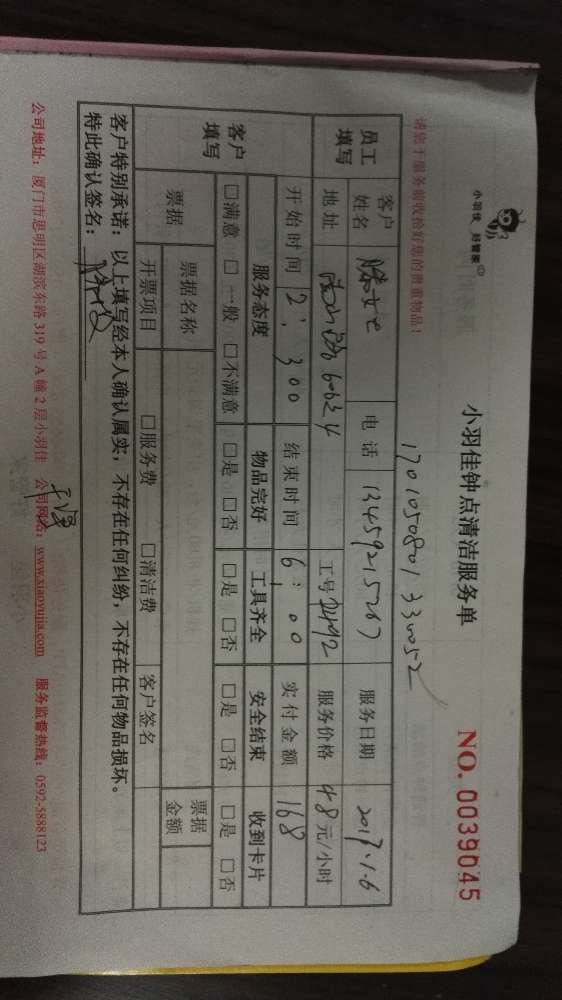 小羽佳 好管家
小羽佳钟点清洁服务单
NO. 0039045
请您于服务前收拾好您的贵重物品!
170105080133
员工填写 客户姓名 滕女士 电话 13459215267 服务日期 2017.1.6
地址 60624 工号 服务价格 48元/小时
开始时间 2:300 结束时间 6:00 实付金额 168
客户填写 服务态度 物品完好 工具齐全 安全结束 收到卡片
□满意 □一般 □不满意 □是 □否 □是 □否 □是 □否 □是 □否
票据 票据名称 票据金额
开票项目 □服务费 □清洁费 客户签名
客户特别承诺:以上填写经本人确认属实,不存在任何纠纷,不存在任何物品损坏。
特此确认签名:
公司地址:厦门市思明区湖滨东路319号A幢2层小羽佳 公司网络:www.xiaoyujia.com 服务监督热线:0592-5888123